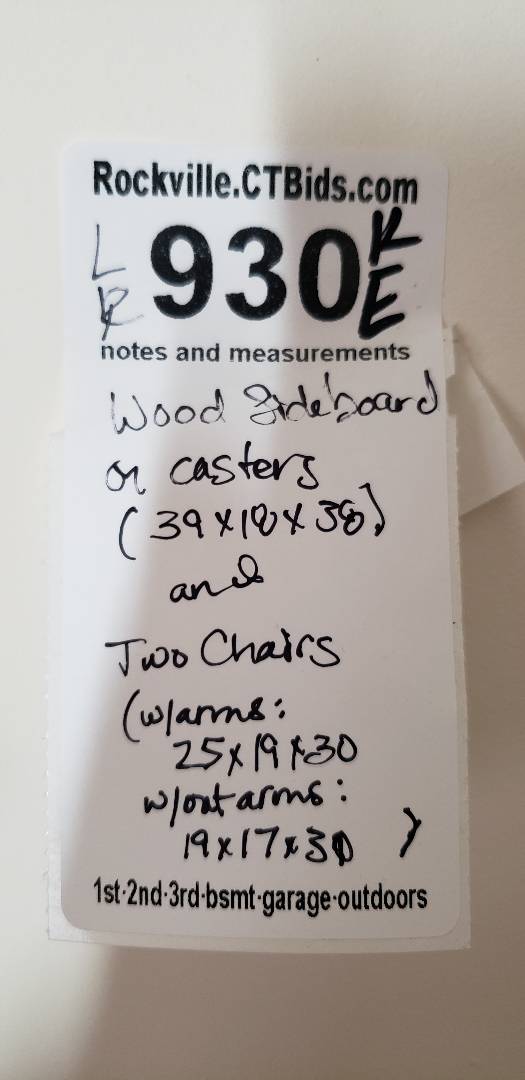 Rockville.CTBids.com
LR 930 KE
notes and measurements
Wood Sideboard
on casters
(39x18x38)
and
Two Chairs
(w/arms:
25x19x30
w/out arms:
19x17x30 )
1st·2nd·3rd·bsmt·garage·outdoors